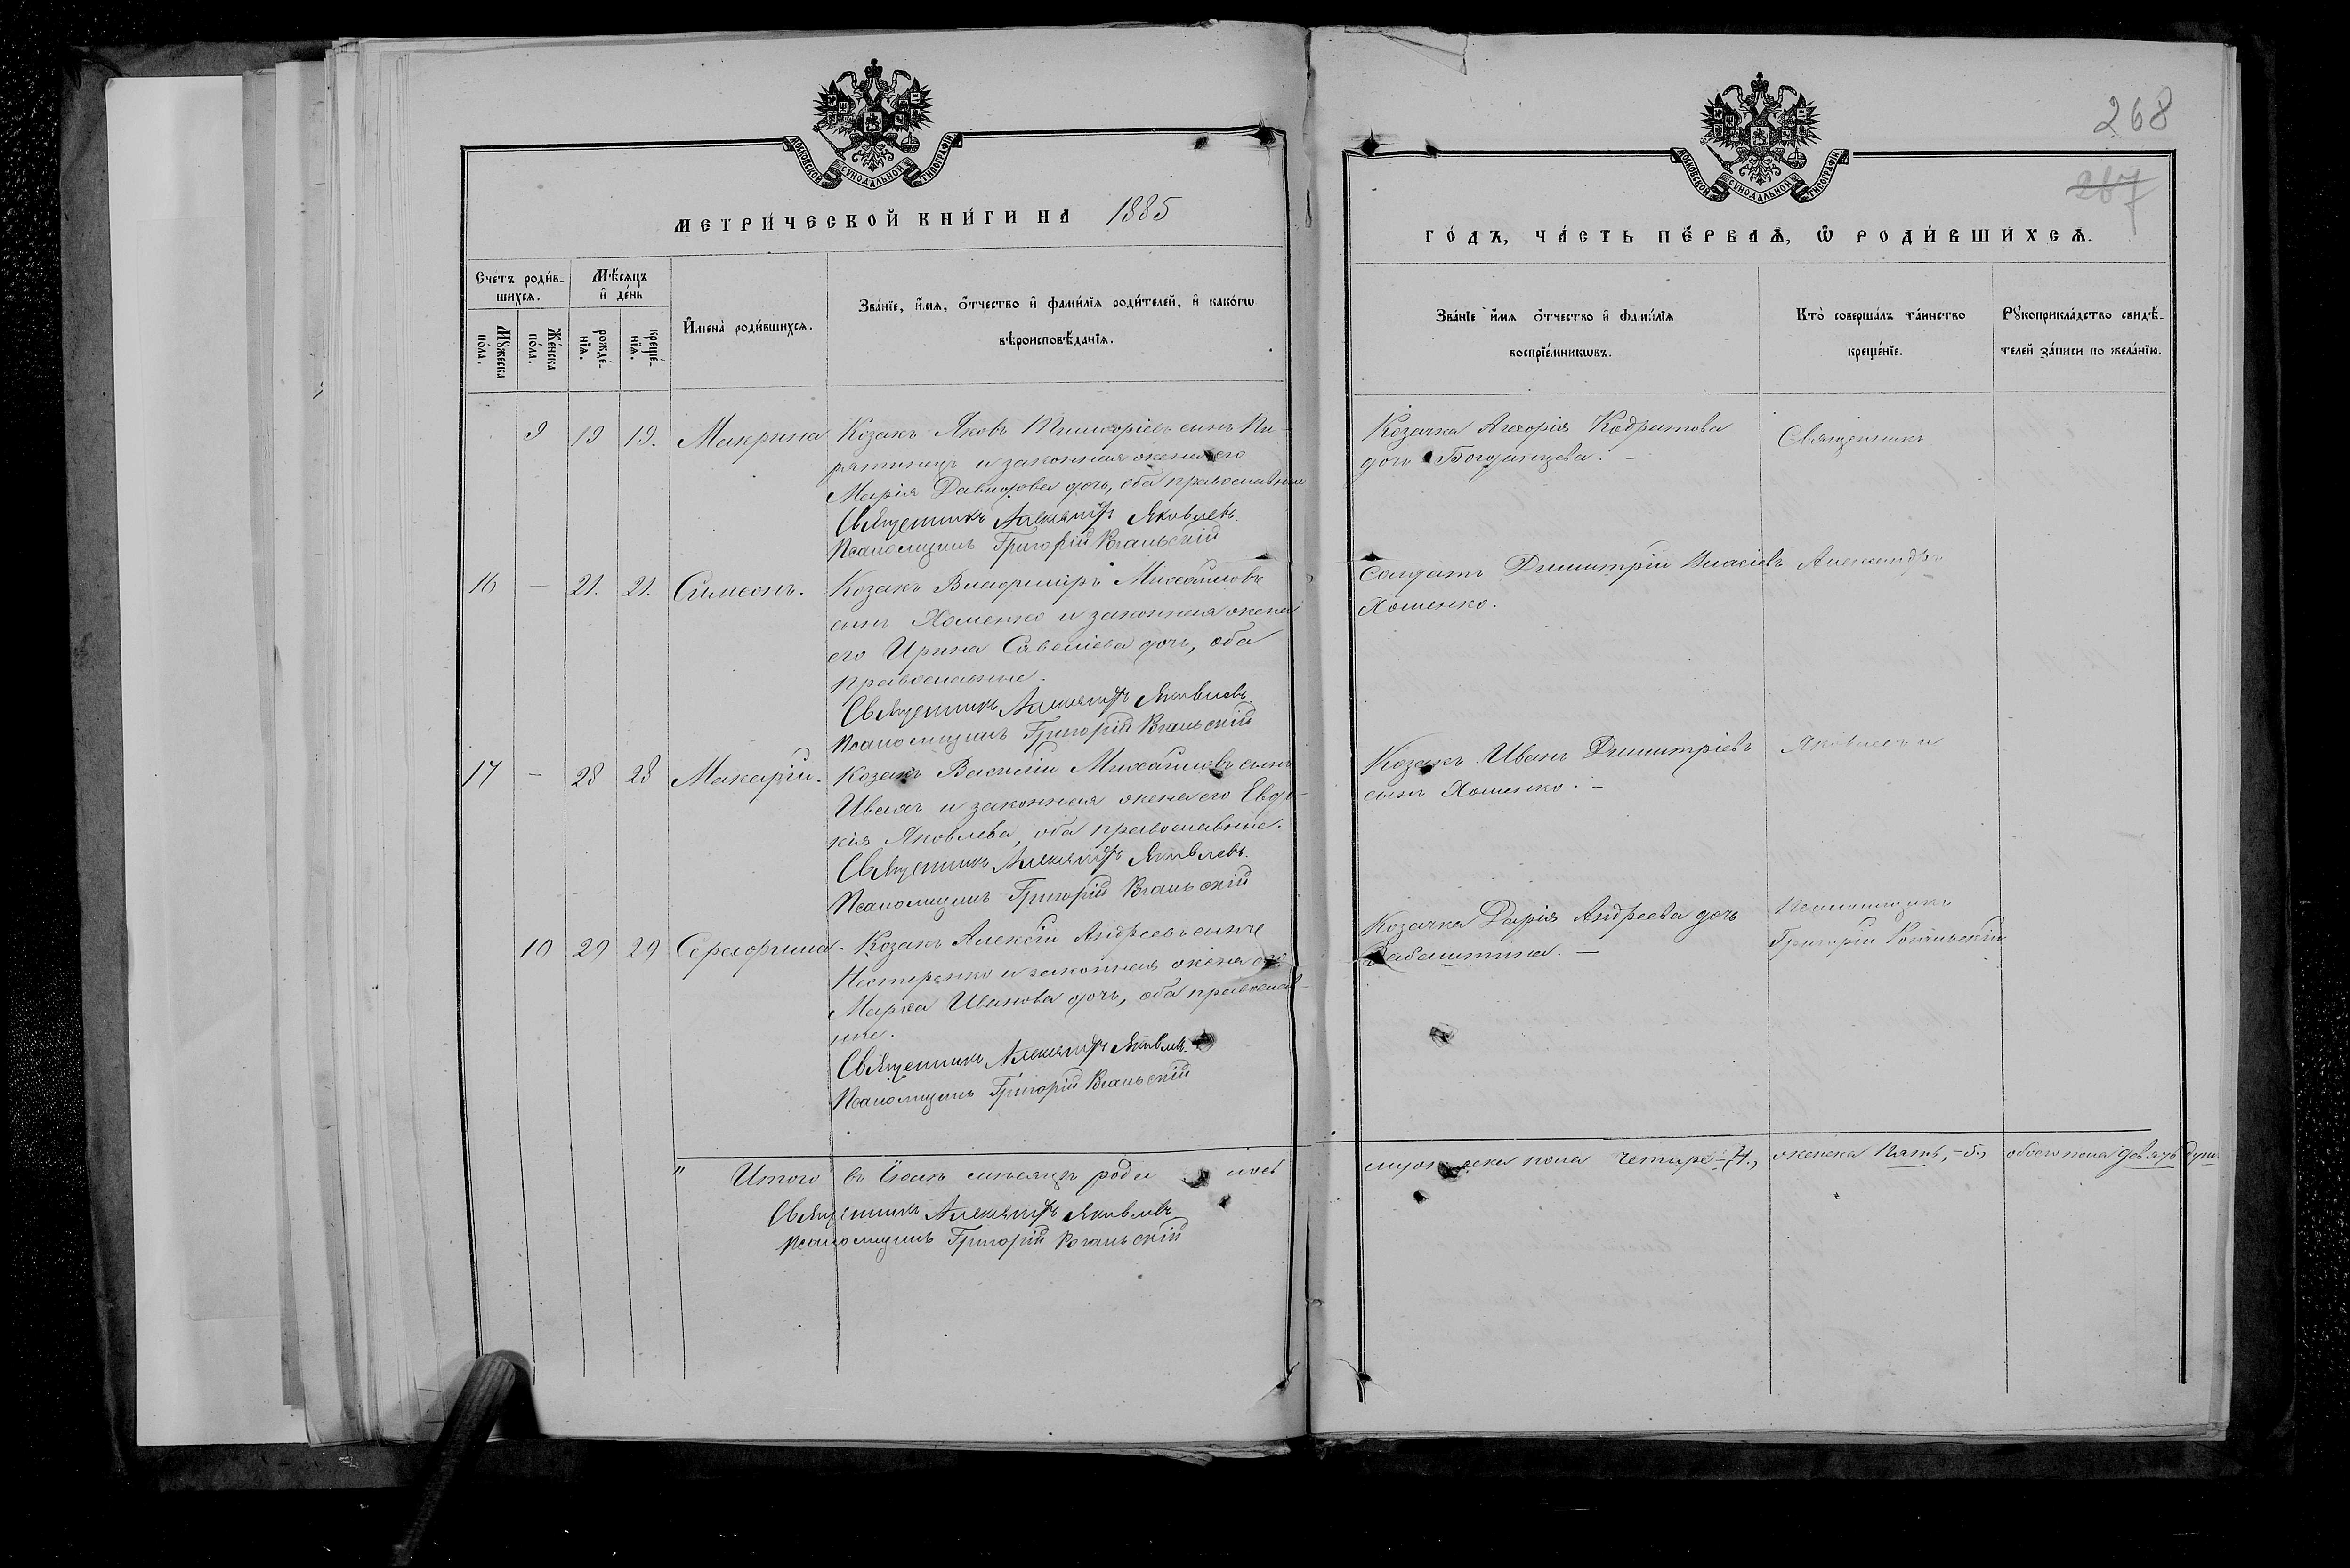 268
267
МОСКОВСКОЙ СѴНОДАЛЬНОЙ ТИПОГРАФІИ
МОСКОВСКОЙ СѴНОДАЛЬНОЙ ТИПОГРАФІИ
МЕТРИ́ЧЕСКОЙ КНИ́ГИ НА 1885
ГО́ДЪ, ЧА́СТЬ ПЕ́РВАѦ, Ѿ РОДИ́ВШИХСѦ.
Счетъ роди́в-
шихсѧ.
Мѣ́сѧцъ
и҆ де́нь
Мꙋ́жеска
по́ла.
Же́нска
по́ла.
рожде́-
нїѧ.
креще́-
нїѧ.
И҆мена̀ роди́вшихсѧ.
Зва́нїе, и҆́мѧ, ѻ҆́тчество и҆ фами́лїѧ роди́телей, и҆ како́гѡ
вѣроисповѣ́данїѧ.
Зва́нїе и҆́мѧ ѻ҆́тчество и҆ фами́лїѧ
воспрїе́мникѡвъ.
Кто̀ соверша́лъ та́инство
креще́нїе.
Рꙋкоприкла́дство свидѣ́-
телей за́писи по жела́нїю.
9 19 19. Макрина Козакъ Яковъ сынъ Пи-
рятинецъ и законная жена его
Марія Давидова дочь, оба православные
Священникъ Александръ Яковлевъ.
Псаломщикъ Григорій
Козачка Кодратова
дочь Богданцева. –
Священникъ
16 – 21. 21. Симеонъ. Козакъ Владиміръ Михайловъ
сынъ Хоменко и законная жена
его Ирина Савеліева дочь, оба
православные.
Священникъ Александръ Яковлевъ
Псаломщикъ Григорій
Солдатъ Димитрій Власіевъ
Хоменко.
Александръ
17 – 28 28 Макарій. Козакъ Василій Михайловъ сынъ
и законная жена его Евдо-
кія Яковлева, оба православные.
Священникъ Александръ Яковлевъ.
Псаломщикъ Григорій
Козакъ Иванъ Димитріевъ
сынъ Хоменко. –
Яковлевъ и
10 29 29 Серафима. Козакъ Алексій Андреевъ сынъ
Нестеренко и законная жена его
Марѳа Иванова дочь, оба православ-
ные.
Священникъ Александръ Яковлевъ.
Псаломщикъ Григорій
Козачка Дарія Андреева дочь
Псаломщикъ
Григорій
" Итого въ Іюлѣ мѣсяцѣ роди лось
мужеска пола четыре – 4., женска пять, – 5., обоего пола девять душъ
Священникъ Александръ Яковлевъ
Псаломщикъ Григорій